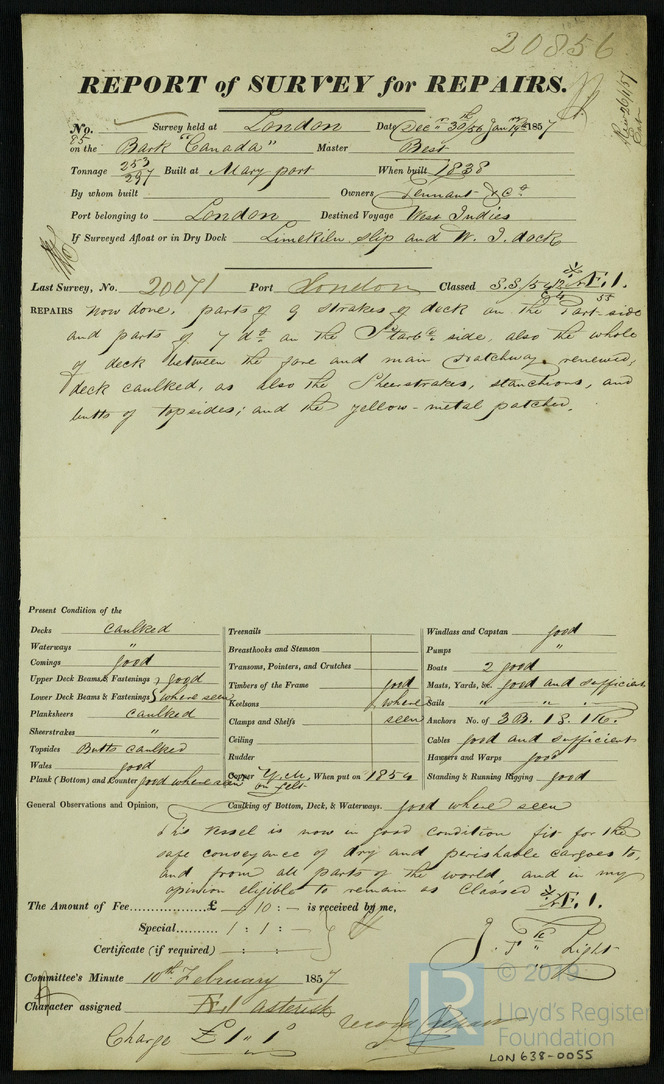 20856
REPORT of SURVEY for REPAIRS.
No. 85 Survey held at London Date Decr 30th/56 Jany 19th 1857
on the Bark "Canada" Master Best
Tonnage 253 297 Built at Maryport When built 1838
By whom built Owners Tennant & Co
Port belonging to London Destined Voyage West Indies
If Surveyed Afloat or in Dry Dock Limekiln slip and W. I. dock
Last Survey, No. 20071 Port London Classed
REPAIRS now done, parts of 9 strakes of deck on the Port side
and parts of 7 do on the Starbd side, also the whole
of deck between the fore and main Hatchways renewed,
deck caulked, as also the Sheerstrakes, stanchions, and
butts of topsides; and the yellow-metal patched.
Present Condition of the
Decks caulked
Waterways "
Comings good
Upper Deck Beams & Fastenings } good
Lower Deck Beams & Fastenings } where seen
Planksheers caulked
Sheerstrakes "
Topsides Butts caulked
Wales good
Plank (Bottom) and Counter good where seen
Treenails
Breasthooks and Stemson
Transoms, Pointers, and Crutches
Timbers of the Frame good
Keelsons where
Clamps and Shelfs seen
Ceiling
Rudder
Copper Y.M. on felt When put on 1854
Windlass and Capstan good
Pumps "
Boats 2 good
Masts, Yards, &c. good and sufficient
Sails " " "
Anchors No. of 3B. 1S. 1K.
Cables good and sufficient
Hawsers and Warps good
Standing & Running Rigging good
General Observations and Opinion, Caulking of Bottom, Deck, & Waterways. good where seen
This vessel is now in good condition fit for the
safe conveyance of dry and perishable cargoes to,
and from all parts of the world, and in my
opinion eligible to remain as Classed Æ.1.
The Amount of Fee £ " 10 : – is received by me,
Special 1 : 1 : –
Certificate (if required) – : – : –
Light
Committee's Minute 10th February 1857
Character assigned Æ 1 asterisk
Charge £1 " 1
© 2019
Lloyd's Register
Foundation
LON 638-0055